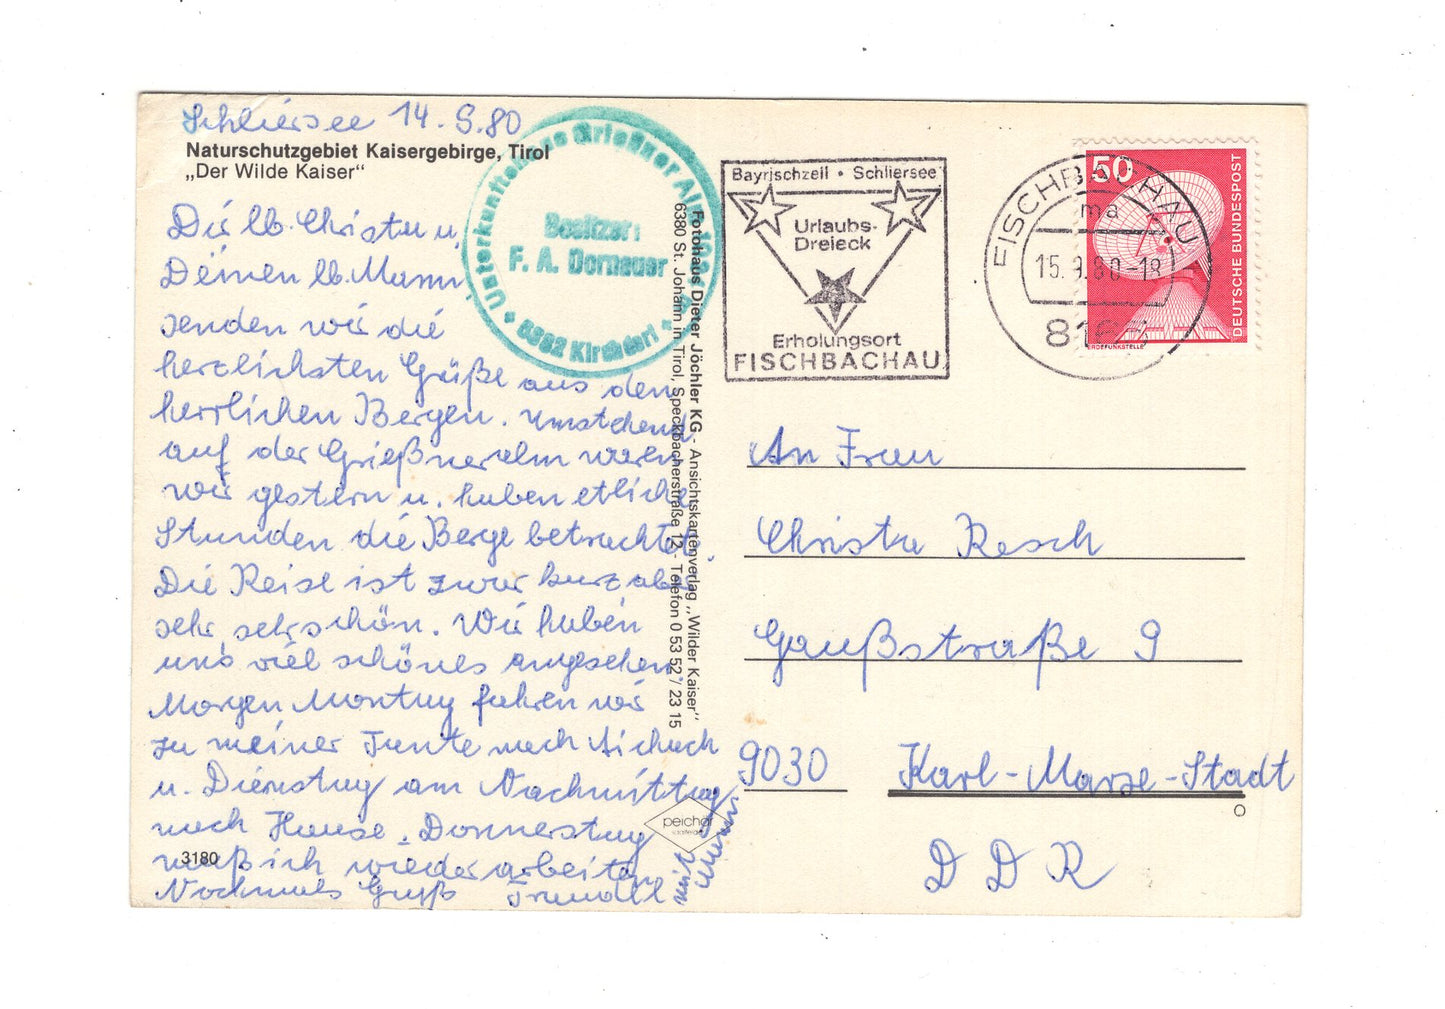 Schliersee 14.9.80
Naturschutzgebiet Kaisergebirge, Tirol
„Der Wilde Kaiser“
Dir lb. Christa u.
Deinen lb. Mann
senden wir die
herzlichsten Grüße aus den
herrlichen Bergen. Umstehend
auf der Grießneralm waren
wir gestern u. haben etliche
Stunden die Berge betrachtet.
Die Reise ist zwar kurz aber
sehr sehr schön. Wir haben
uns viel schönes angesehen
Morgen Montag fahren wir
zu meiner Tante nach Aichach
u. Dienstag am Nachmittag
nach Hause. Donnerstag
muß ich wieder arbeiten
Nochmals Gruß Traudl
mit Mann
3180
Unterkunftshaus Grießner Alm
Besitzer:
F. A. Dornauer
6382 Kirchdorf
Fotohaus Dieter Jöchler KG - Ansichtskartenverlag „Wilder Kaiser“
6380 St. Johann in Tirol, Speckbacherstraße 12 - Telefon 0 53 52 / 23 15
peichär
Bayrischzell • Schliersee
Urlaubs-
Dreieck
Erholungsort
FISCHBACHAU
FISCHBACHAU
ma
15.9.80-18
8167
50
DEUTSCHE BUNDESPOST
ERDEFUNKSTELLE
An Frau
Christa Resch
Gaußstraße 9
9030 Karl-Marx-Stadt
DDR